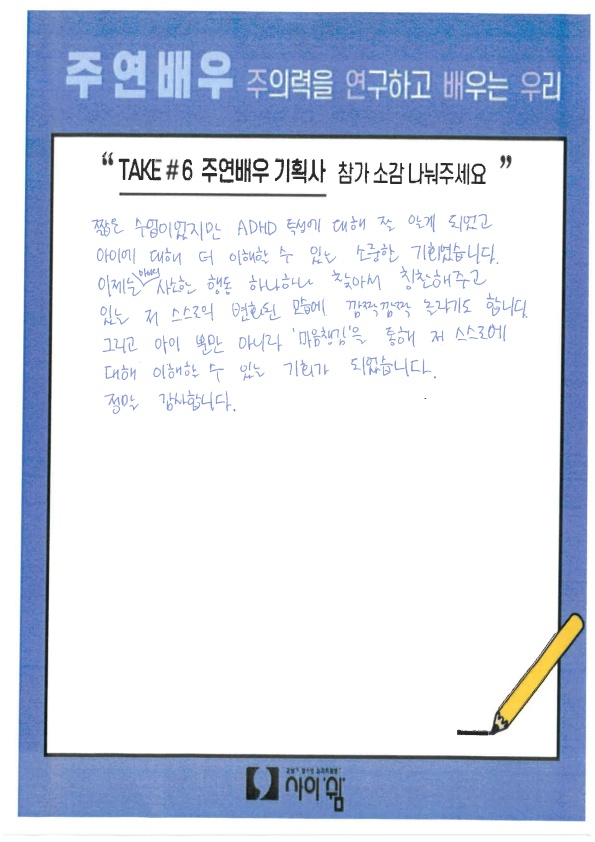 주연배우 주의력을 연구하고 배우는 우리
“ TAKE # 6 주연배우 기획사 참가 소감 나눠주세요 ”
짧은 수업이었지만 ADHD 특성에 대해 잘 알게 되었고
아이에 대해 더 이해할 수 있는 소중한 기회였습니다.
이제는 아이의 사소한 행동 하나하나 찾아서 칭찬해주고
있는 저 스스로의 변화된 모습에 깜짝깜짝 놀라기도 합니다.
그리고 아이 뿐만 아니라 '마음챙김'을 통해 저 스스로에
대해 이해할 수 있는 기회가 되었습니다.
정말 감사합니다.
사이쉼